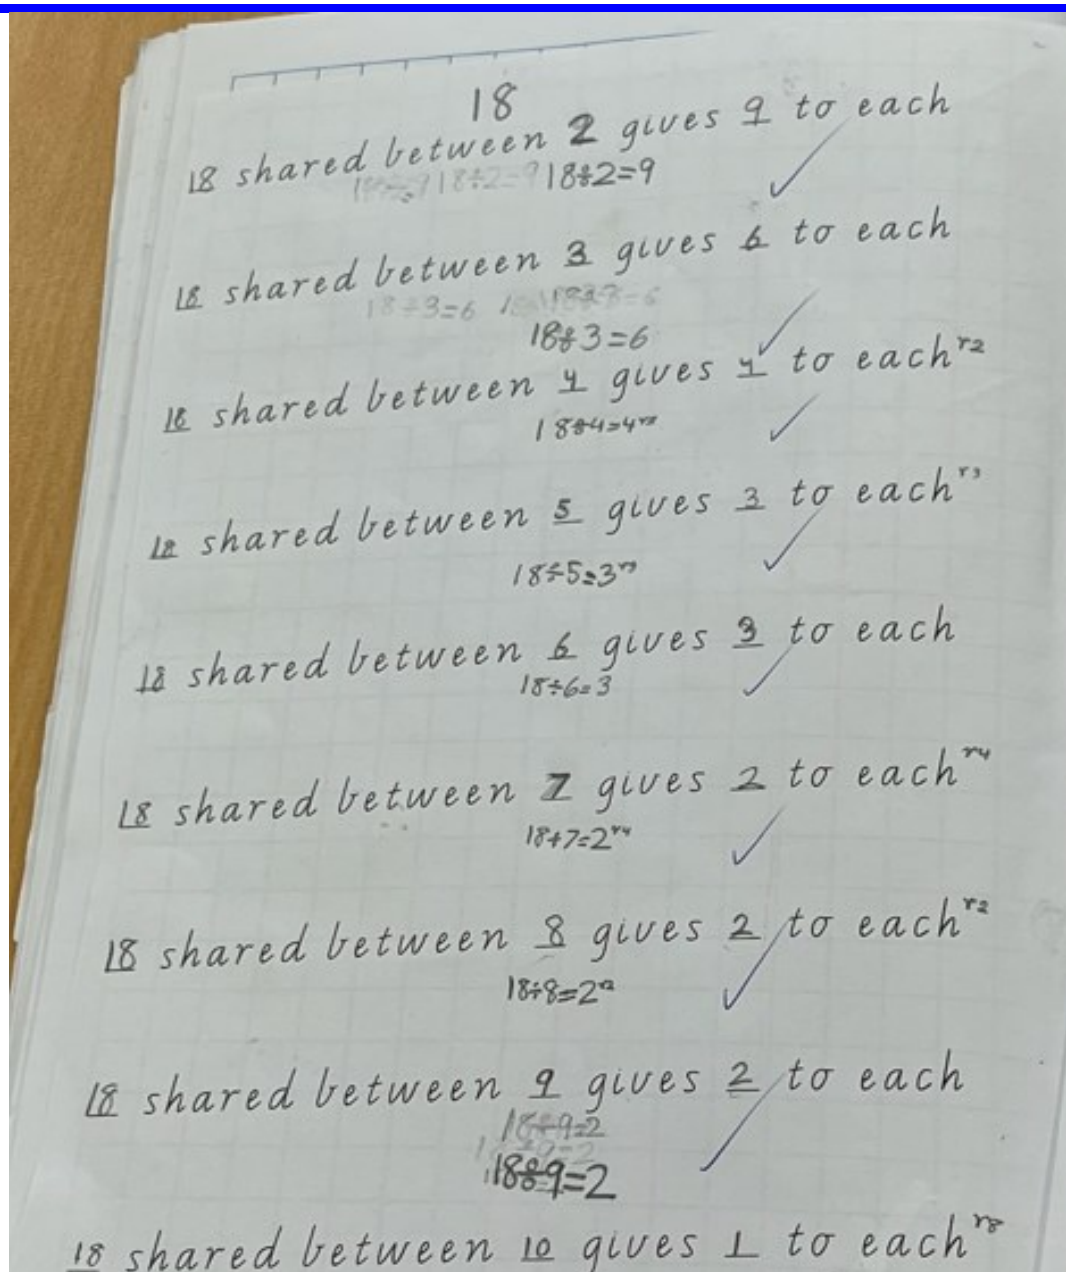 18
18 shared between 2 gives 9 to each
18÷2=9 18÷2=9
18 shared between 3 gives 6 to each
18÷3=6
18÷3=6
18 shared between 4 gives 4 to each r2
18÷4=4 r2
18 shared between 5 gives 3 to each r3
18÷5=3 r3
18 shared between 6 gives 3 to each
18÷6=3
18 shared between 7 gives 2 to each r4
18÷7=2 r4
18 shared between 8 gives 2 to each r2
18÷8=2 r2
18 shared between 9 gives 2 to each
18÷9=2
18÷9=2
18 shared between 10 gives 1 to each r8